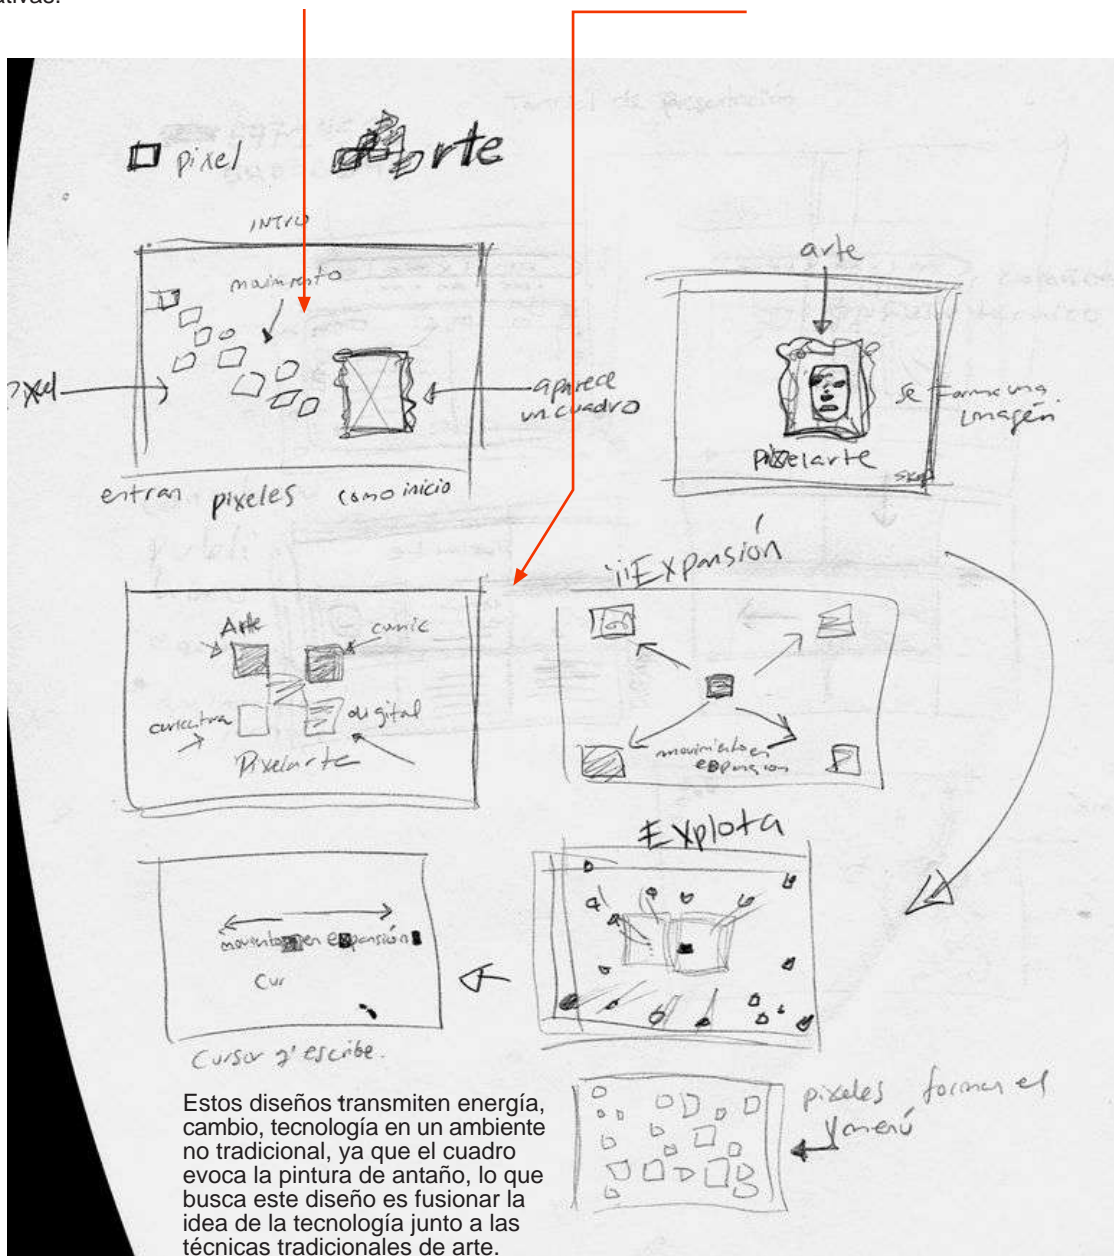 ativas.
pixel
Arte
INTRO
movimiento
arte
pixel
aparece
un cuadro
se forma una
imagen
pixelarte
skip
entran pixeles como inicio
¡¡Expansión
Arte
comic
digital
Pixelarte
movimiento en
expansion
Explota
movimiento en expansión
Cur
Cursor q' escribe.
pixeles forman el
menú
Estos diseños transmiten energía,
cambio, tecnología en un ambiente
no tradicional, ya que el cuadro
evoca la pintura de antaño, lo que
busca este diseño es fusionar la
idea de la tecnología junto a las
técnicas tradicionales de arte.